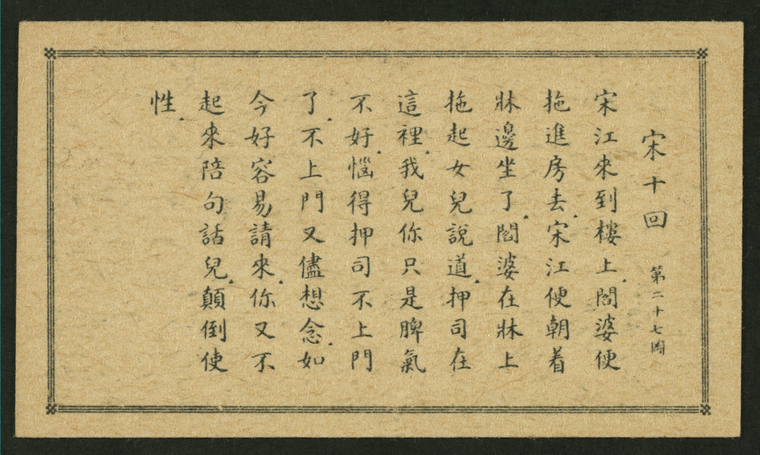 宋十回 第二十七圖
宋江來到樓上.閻婆便
拖進房去.宋江便朝着
牀邊坐了.閻婆在牀上
拖起女兒說道.押司在
這裡.我兒你只是脾氣
不好.惱得押司不上門
了.不上門又儘想念.如
今好容易請來.你又不
起來陪句話兒.顛倒使
性.